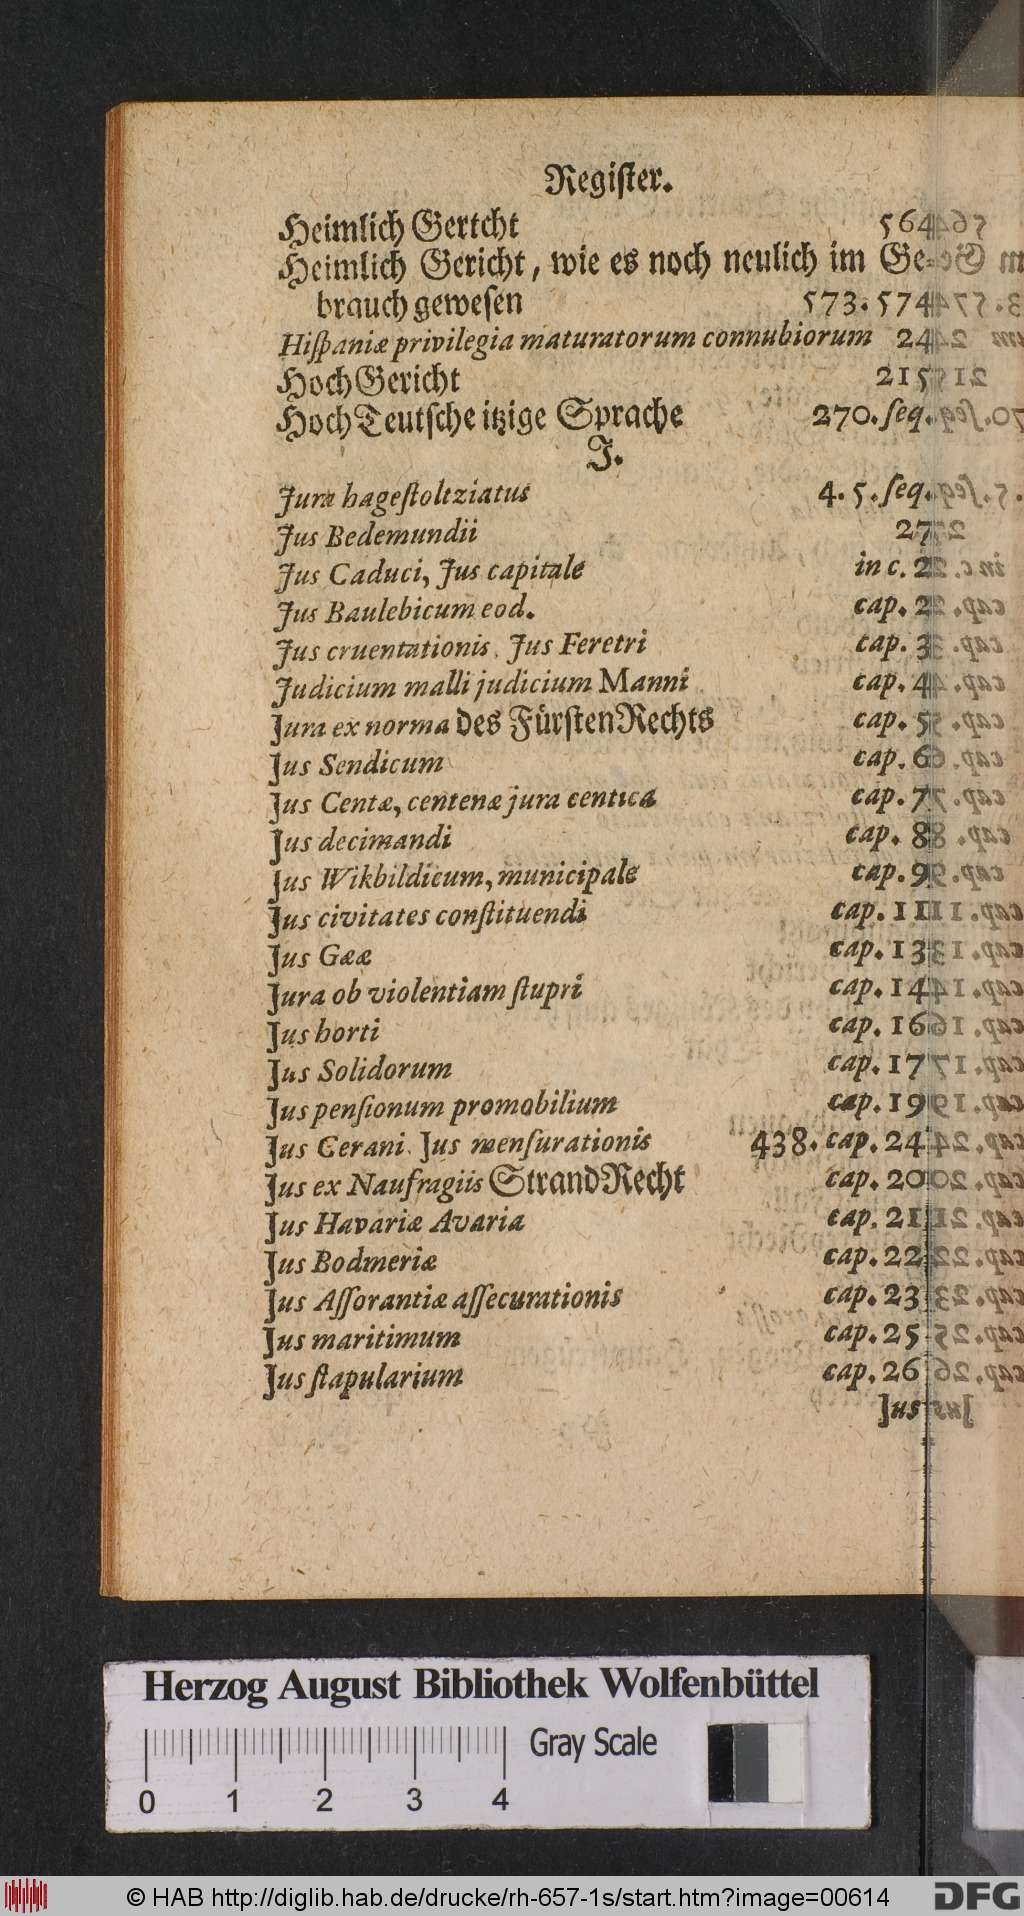 Regiſter.
Heimlich Gertcht 564
Heimlich Gericht, wie es noch neulich im Ge-
brauch geweſen 573. 574
Hiſpaniæ privilegia maturatorum connubiorum 24
HochGericht 215
HochTeutſche itzige Sprache 270. ſeq.
J.
Jura hageſtoltziatus 4. 5. ſeq.
Jus Bedemundii 27
Jus Caduci, Jus capitale in c. 2
Jus Baulebicum eod. cap. 2
Jus cruentationis. Jus Feretri cap. 3
Judicium malli judicium Manni cap. 4
Jura ex norma des FürſtenRechts cap. 5
Jus Sendicum cap. 6
Jus Centæ, centenæ jura centica cap. 7
Jus decimandi cap. 8
Jus Wikbildicum, municipale cap. 9
Jus civitates conſtituendi cap. 11
Jus Gææ cap. 13
Jura ob violentiam ſtupri cap. 14
Jus horti cap. 16
Jus Solidorum cap. 17
Jus penſionum promobilium cap. 19
Jus Gerani. Jus menſurationis 438. cap. 24
Jus ex Naufragiis StrandRecht cap. 20
Jus Havariæ Avaria cap. 21
Jus Bodmeriæ cap. 22
Jus Aſſorantiæ aſſecurationis cap. 23
Jus maritimum cap. 25
Jus ſtapularium cap. 26
Jus
Herzog August Bibliothek Wolfenbüttel
Gray Scale
0 1 2 3 4
© HAB http://diglib.hab.de/drucke/rh-657-1s/start.htm?image=00614
DFG